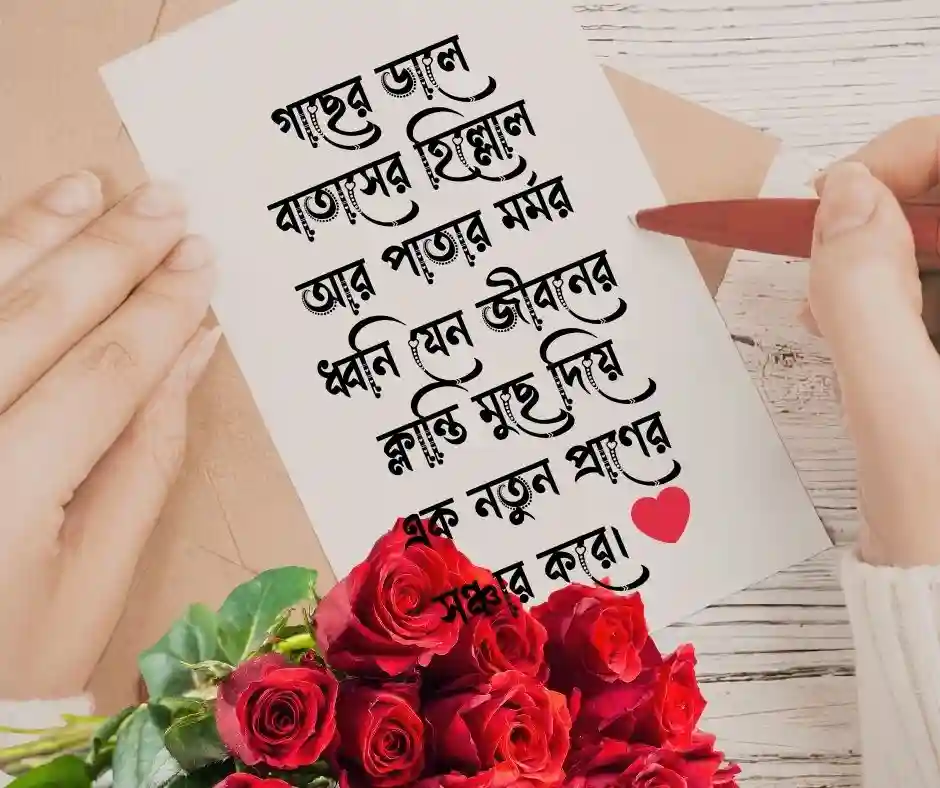 গাছের ডালে
বাতাসের হিল্লোল
আর পাতার মর্মর
ধ্বনি যেন জীবনের
ক্লান্তি মুছে দিয়ে
এক নতুন প্রাণের
সঞ্চার করে।